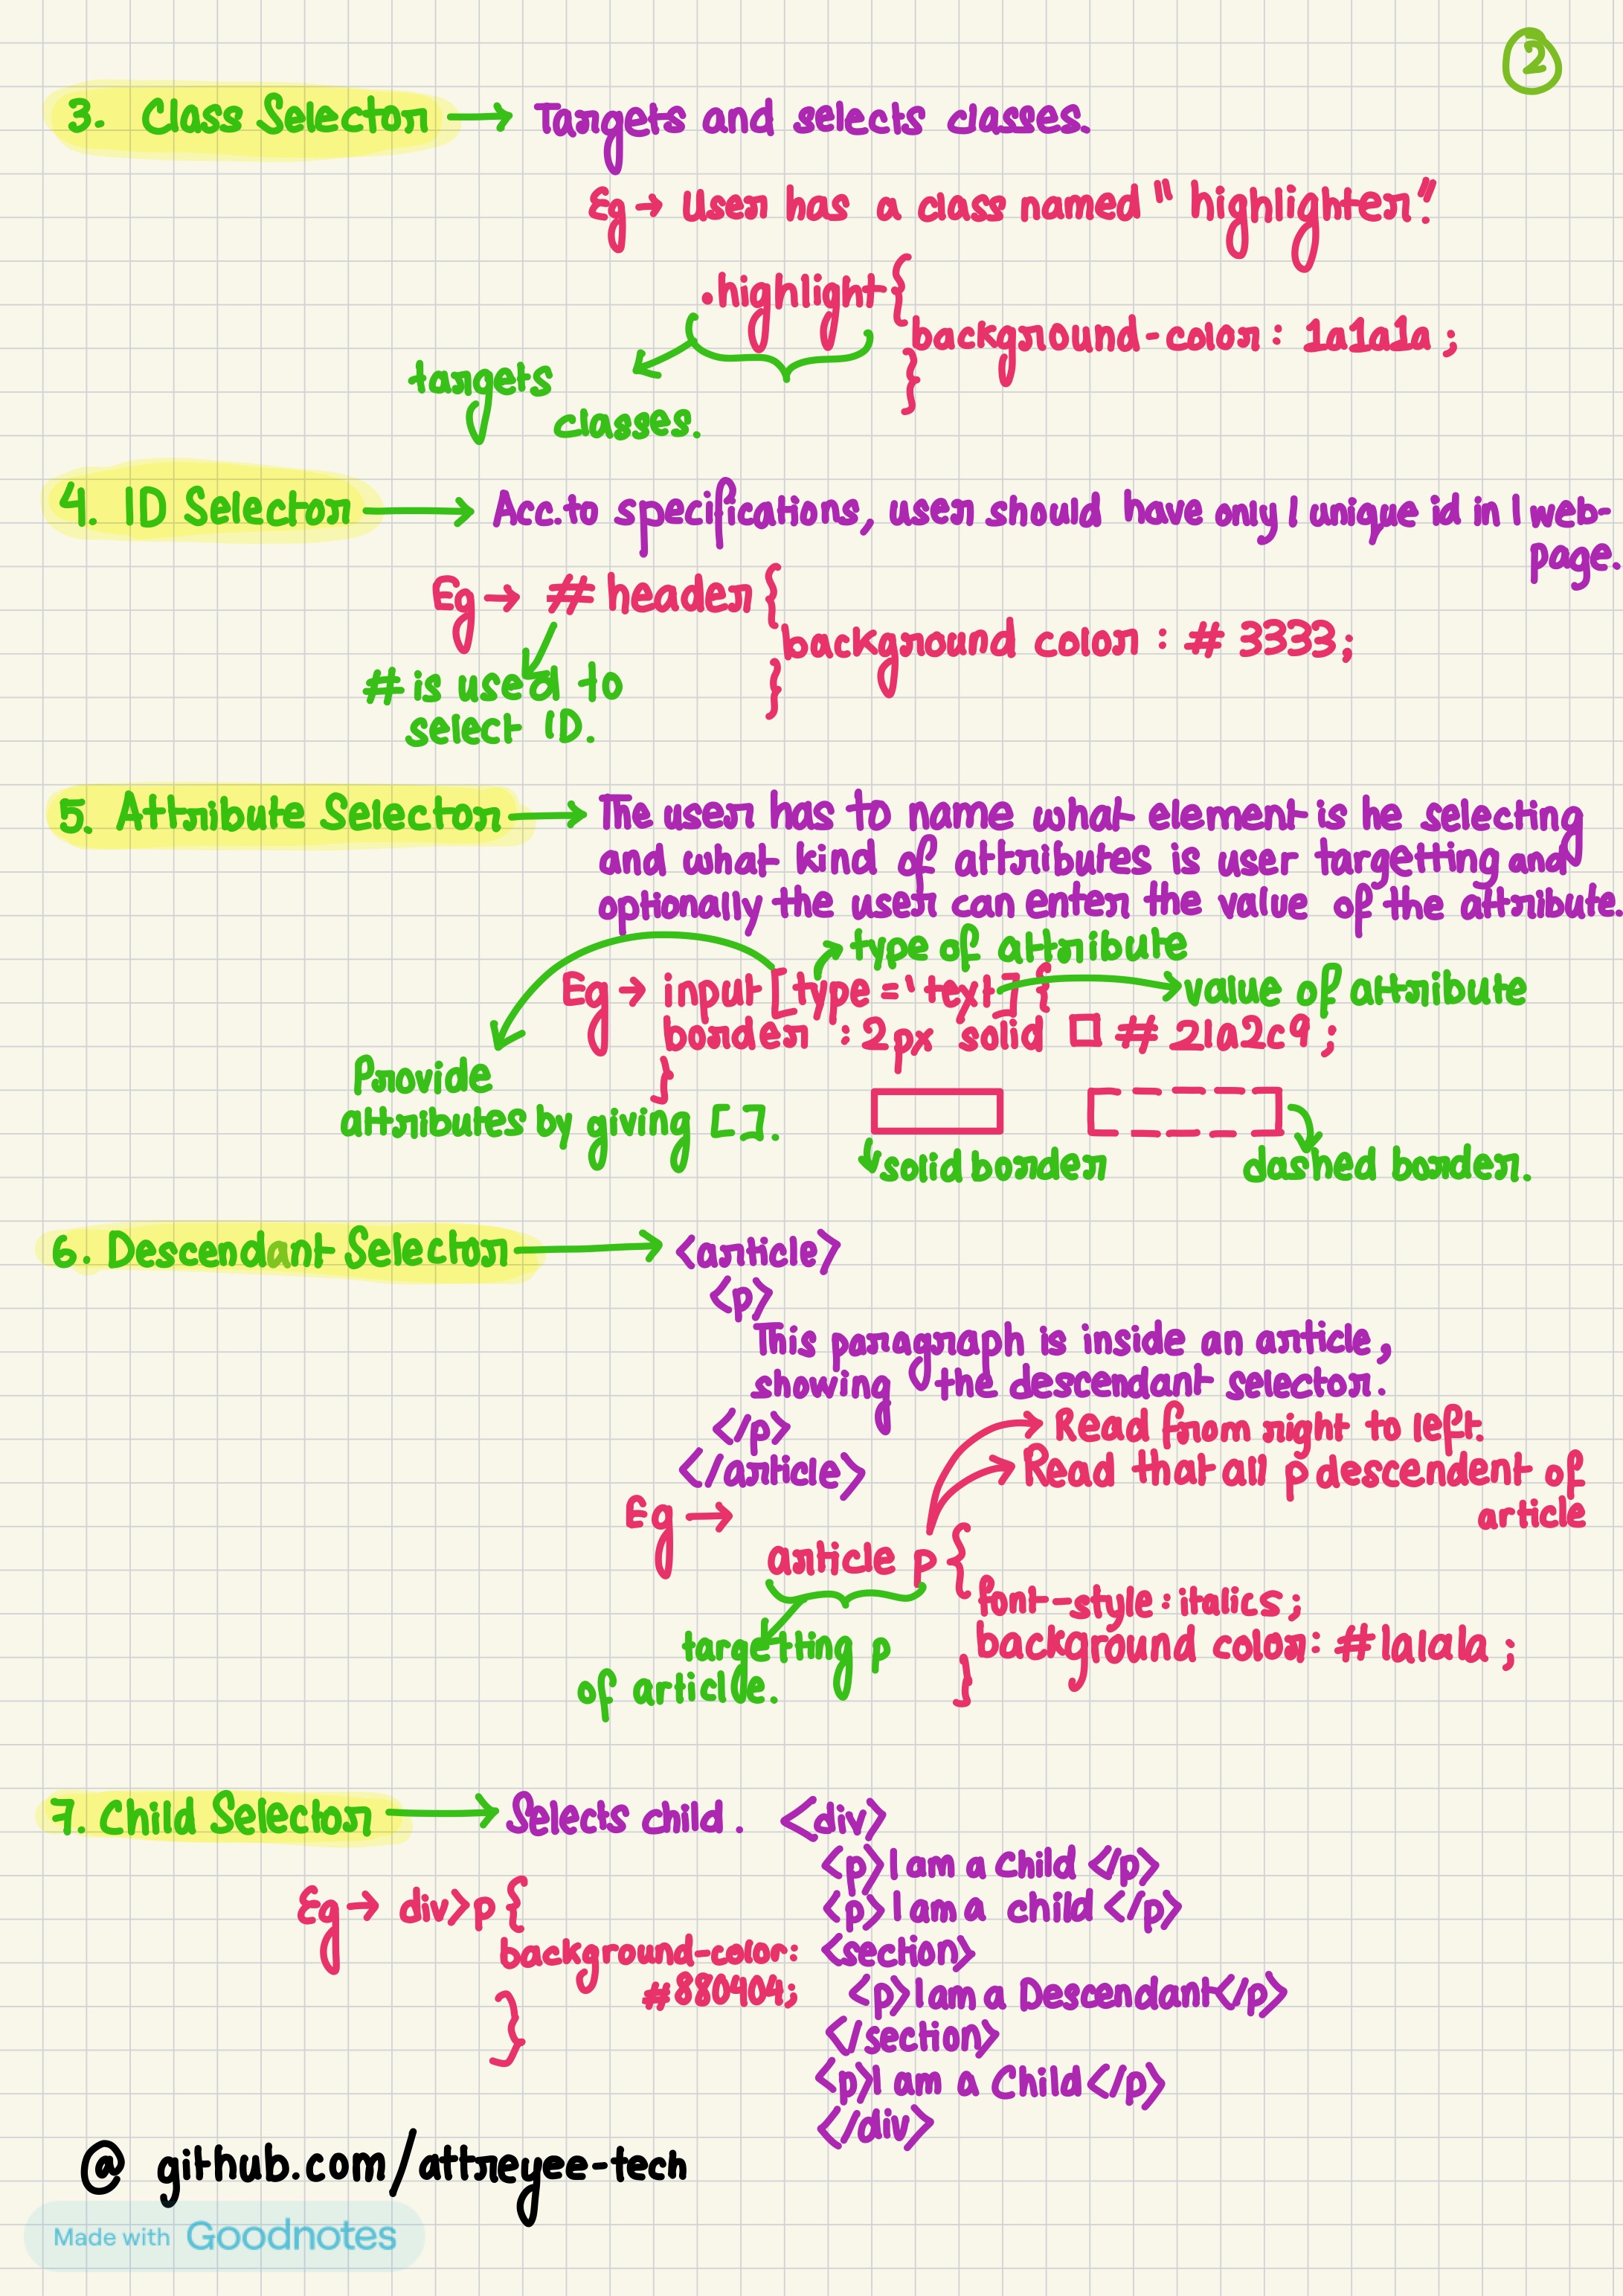 2
3. Class Selector → Targets and selects classes.
Eg → User has a class named "highlighter".
.highlight {
background-color : 1a1a1a ;
}
targets
classes.
4. ID Selector → Acc.to specifications, user should have only 1 unique id in 1 web-
page.
Eg → # header {
background color : # 3333;
}
# is used to
select ID.
5. Attribute Selector → The user has to name what element is he selecting
and what kind of attributes is user targetting and
optionally the user can enter the value of the attribute.
type of attribute
Eg → input [type = 'text'] { → value of attribute
border : 2px solid □ # 21a2c9 ;
}
Provide
attributes by giving [ ].
solid border
dashed border.
6. Descendant Selector → <article>
<p>
This paragraph is inside an article,
showing the descendant selector.
</p>
</article>
Read from right to left.
Read that all p descendent of
article
Eg →
article p {
font-style : italics ;
background color: #1a1a1a ;
}
targetting p
of article.
7. Child Selector → Selects child. <div>
<p> I am a Child </p>
<p> I am a child </p>
<section>
<p> I am a Descendant </p>
</section>
<p> I am a Child </p>
</div>
Eg → div>p {
background-color:
#880404;
}
@ github.com/attreyee-tech
Made with Goodnotes